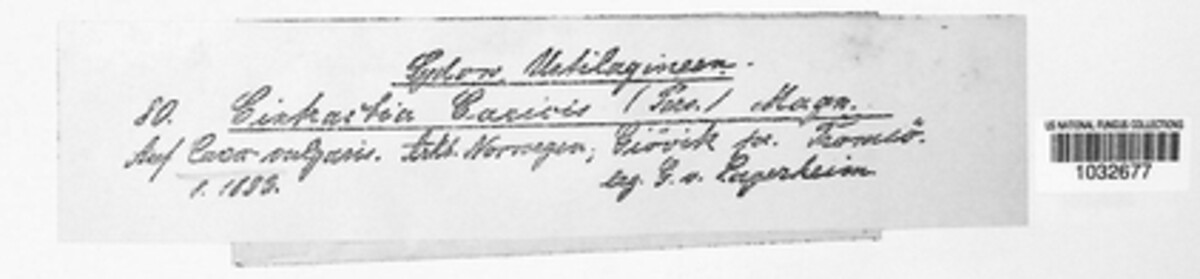 Sydow, Ustilagineen.
80. Cintractia Caricis (Pers.) Magn.
Auf Carex vulgaris. Norwegen; Giövik pr. Tromsö.
1. 1893. leg. G. v. Lagerheim
US NATIONAL FUNGUS COLLECTIONS
1032677